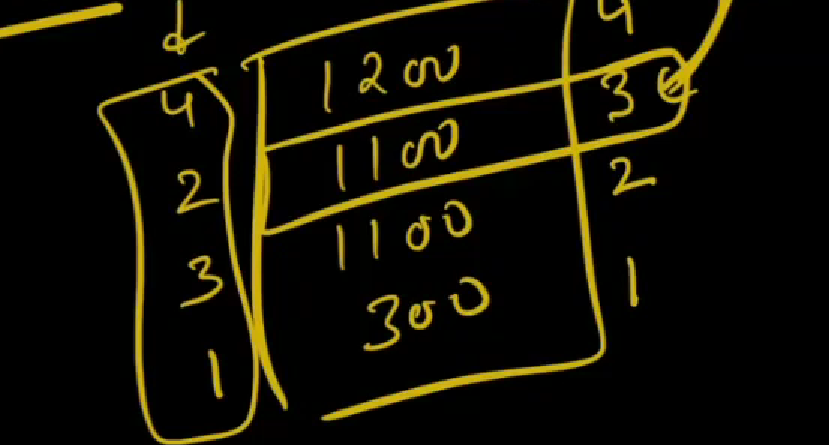 d
4 1200 4
2 1100 3
3 1100 2
1 300 1